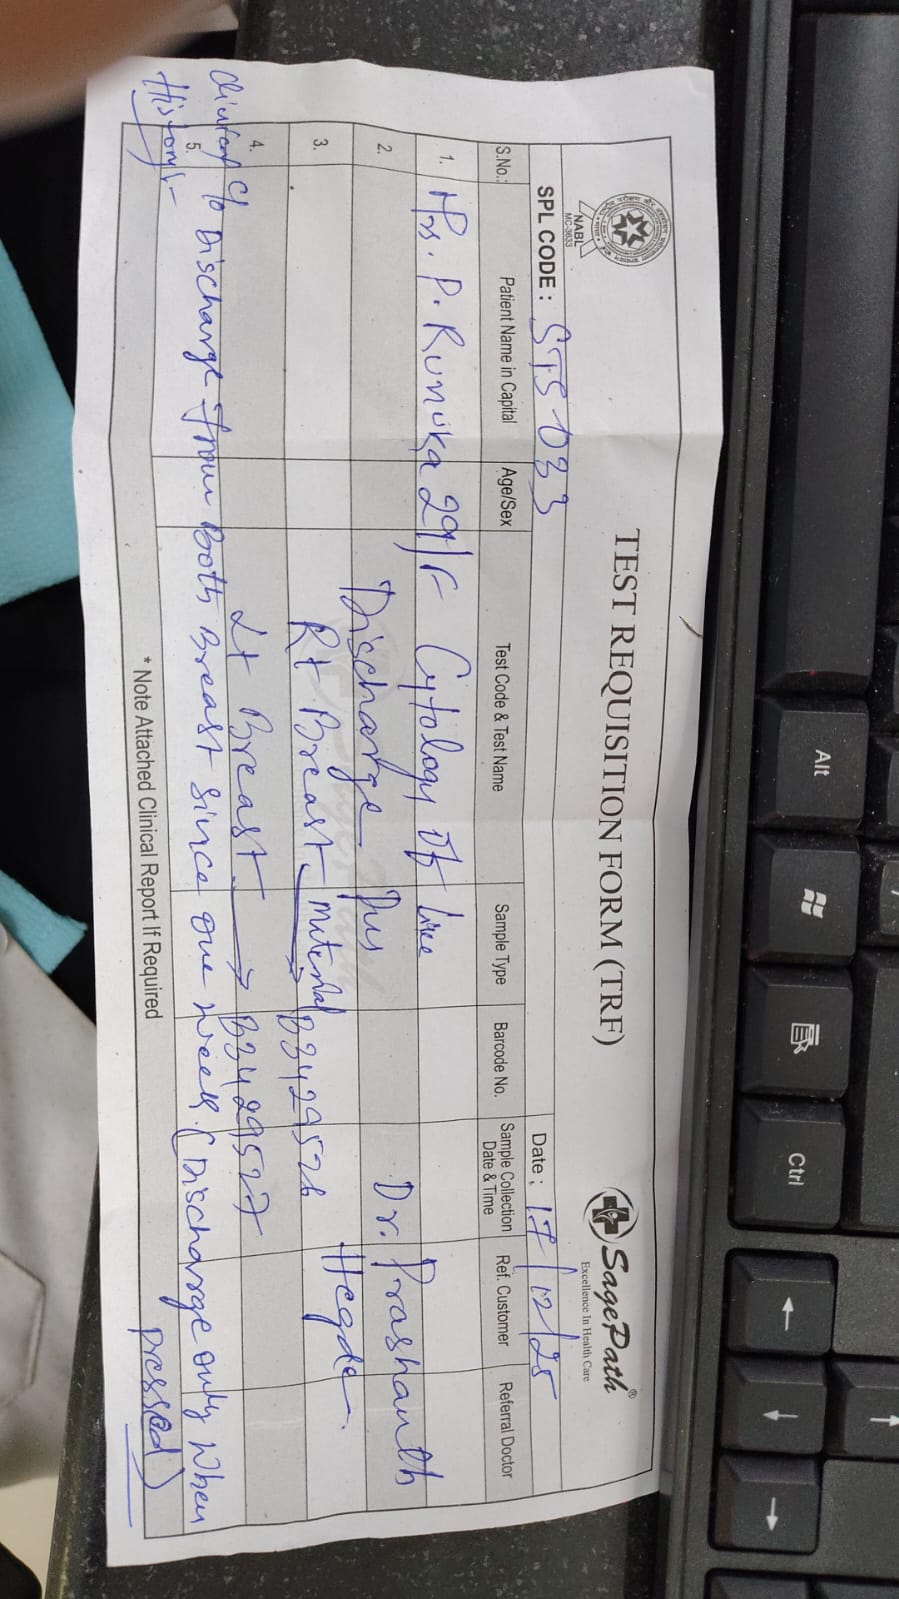 NABL
MC-3633
TEST REQUISITION FORM (TRF)
SagePath®
Excellence In Health Care
SPL CODE : STS 033
Date : 17/12/25
S.No.: Patient Name in Capital Age/Sex Test Code & Test Name Sample Type Barcode No. Sample Collection Date & Time Ref. Customer Referral Doctor
1. Mrs. P. Runuka 29/F Cytology Of
2. Discharge Pus Dr. Prashanth
3. Rt Breast material → B3429526 Hegde
4. Lt Breast → B3429527
5.
C/o Discharge from Both Breast since one week. (Discharge only when
History:-
pressed)
* Note Attached Clinical Report If Required
Alt
Ctrl